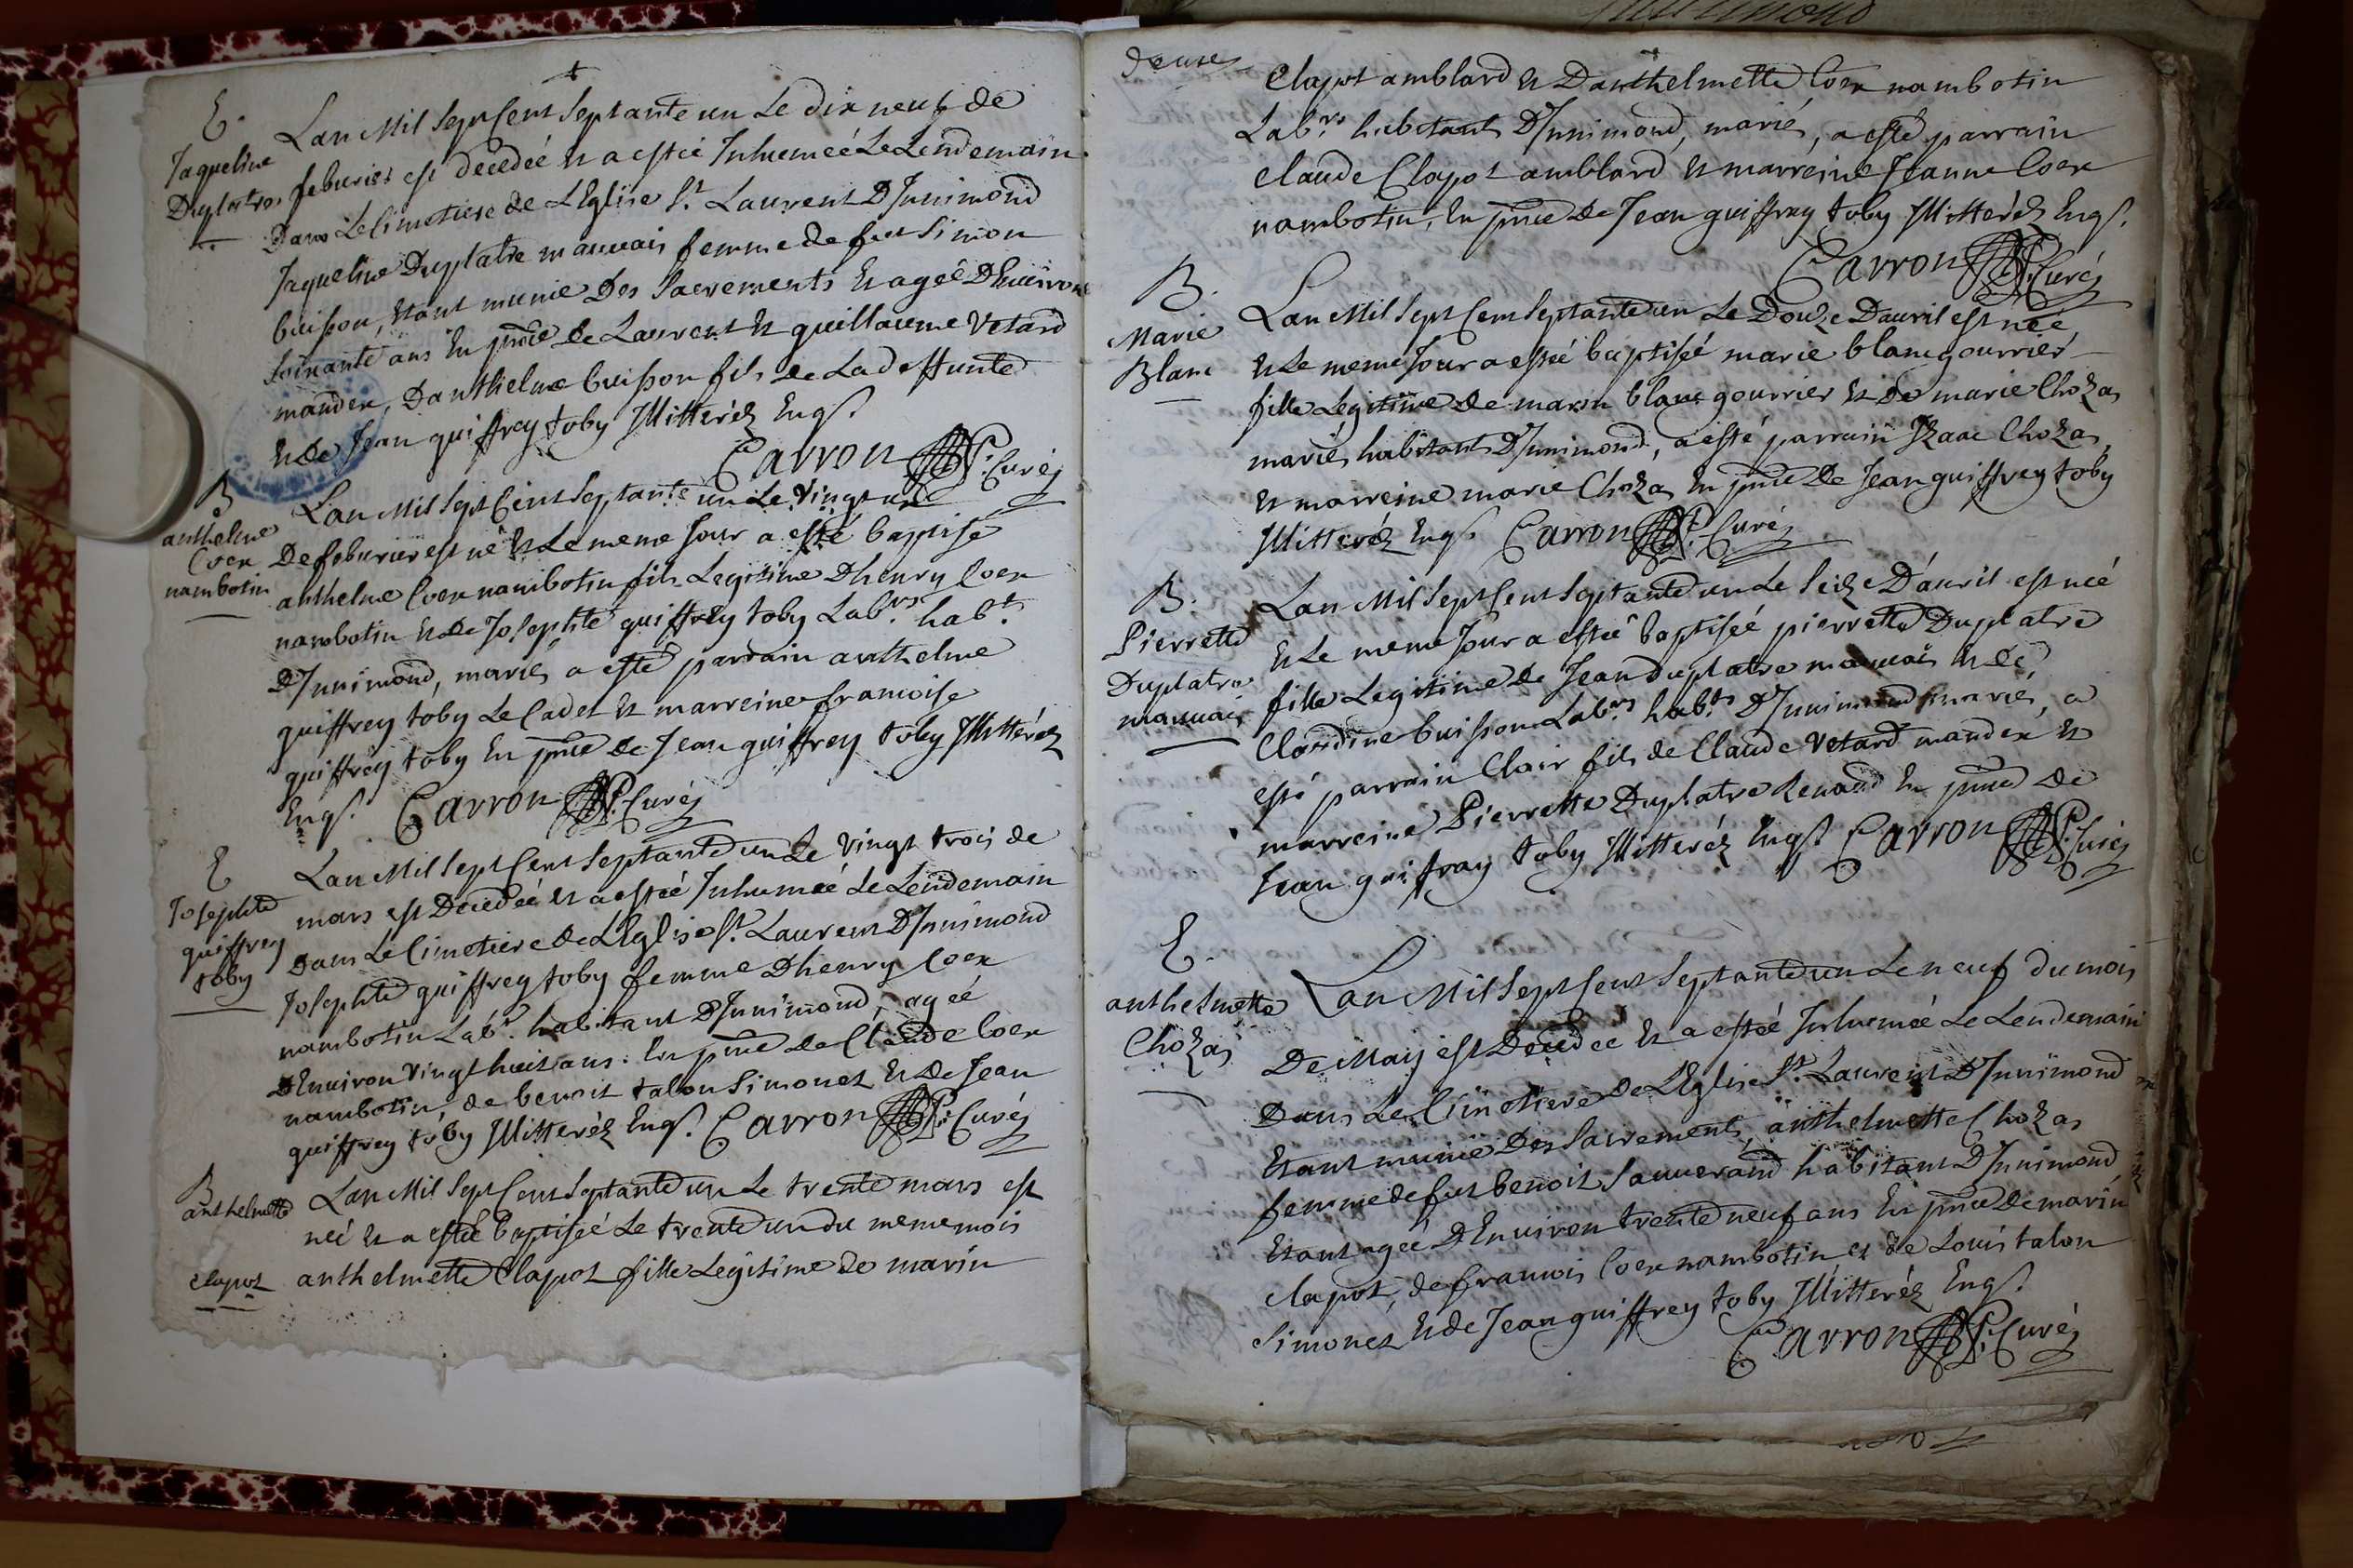 E.
Jaqueline
Duplatre
Lan Mil Sept Cent Septante un Le dix neuf de
feburier est décedeé et a esteé Inhumeé Le Lendemain
Dans Le Cimetiere de LEglise St. Laurent DInnimond
Jaqueline Duplatre mauvais femme de feu Simon
buisson, étant munie Des Sacrements et ageé DEnviron
soixante ans En pnce de Laurent et guillaume Vetard
mandex, Danthelme buisson fils de La deffunte
et de Jean guiffrey toby Illitteréz Enqs.
Carron Curéz
B
anthelme
Coex
nambotin
Lan Mil Sept Cent Septante un Le Vingt un
De feburier est né et Le meme Jour a esté baptisé
anthelme Coex nambotin fils Legitime Dhenry Coex
nambotin et de Josephte guiffrey toby Labrs. habt.
DInnimond, mariés a esté parrain anthelme
guiffrey toby Le Cadet et marreine francoise
guiffrey toby En pnce de Jean guiffrey toby Illitteréz
Enqs. Carron Curéz
E
Josephte
guiffrey
toby
Lan Mil Sept Cent Septante un Le Vingt trois de
mars est Décedeé et a esteé Inhumeé Le Lendemain
Dans Le Cimetiere de LEglise St. Laurent DInnimond
Josephte guiffrey toby femme Dhenry Coex
nambotin Labr. habitant DInnimond, ageé
DEnviron Vingt huit ans. En pnce de Claude Coex
nambotin, de benoit talon Simonet et de Jean
guiffrey toby Illitteréz Enqs. Carron Curéz
B
anthelmette
Clapot
Lan Mil Sept Cent Septante un Le trente mars est
neé et a esteé baptiseé Le trente un du meme mois
anthelmette Clapot fille Legitime de marin
deuxe
Clapot amblard et Danthelmette Coex nambotin
Labrs. habitants DInnimond, mariés, a esté parrain
claude Clapot amblard et marreine Jeanne Coex
nambotin, En pnce de Jean guiffrey toby Illitteréz Enqs.
Carron Curéz
B.
Marie
Blanc
Lan Mil Sept Cent Septante un Le Douze Dauril est neé
et Le meme Jour a esteé baptiseé marie blanc gourrier
fille Légitime de marin blanc gourrier et de marie Chozas
mariés habitants DInnimond, a esté parrain Izaac Chozas
et marreine marie Chozas En pnce De Jean guiffrey toby
Illitteréz Enqs. Carron Curéz
B.
Pierrette
Duplatre
mauvais
Lan Mil Sept Cent Septante un Le Seize Dauril est neé
et Le meme Jour a esteé baptiseé pierrette Duplatre
fille Legitime de Jean duplatre mauvais et de
Claudine buisson Labrs. habts. DInnimond mariés, a
esté parrain Clair fils de Claude Vetard mandex et
marreine Pierrette Duplatre Renaud En pnce de
Jean guiffray toby Illitteréz Enqs. Carron Curéz
E.
anthelmette
Chozas
Lan Mil Sept Cent Septante un Le neuf du mois
De May est Décedeé et a esteé Inhumeé Le Lendemain
Dans Le Cimetiere de LEglise St. Laurent DInnimond
étant munie Des Sacrements, anthelmette Chozas
femme de feu benoit Sauverand habitant DInnimond
étant ageé DEnviron trente neuf ans En pnce De marin
Clapot, de francois Coex nambotin et de Louis talon
Simonet et de Jean guiffrey toby Illitteréz Enqs.
Carron Curéz